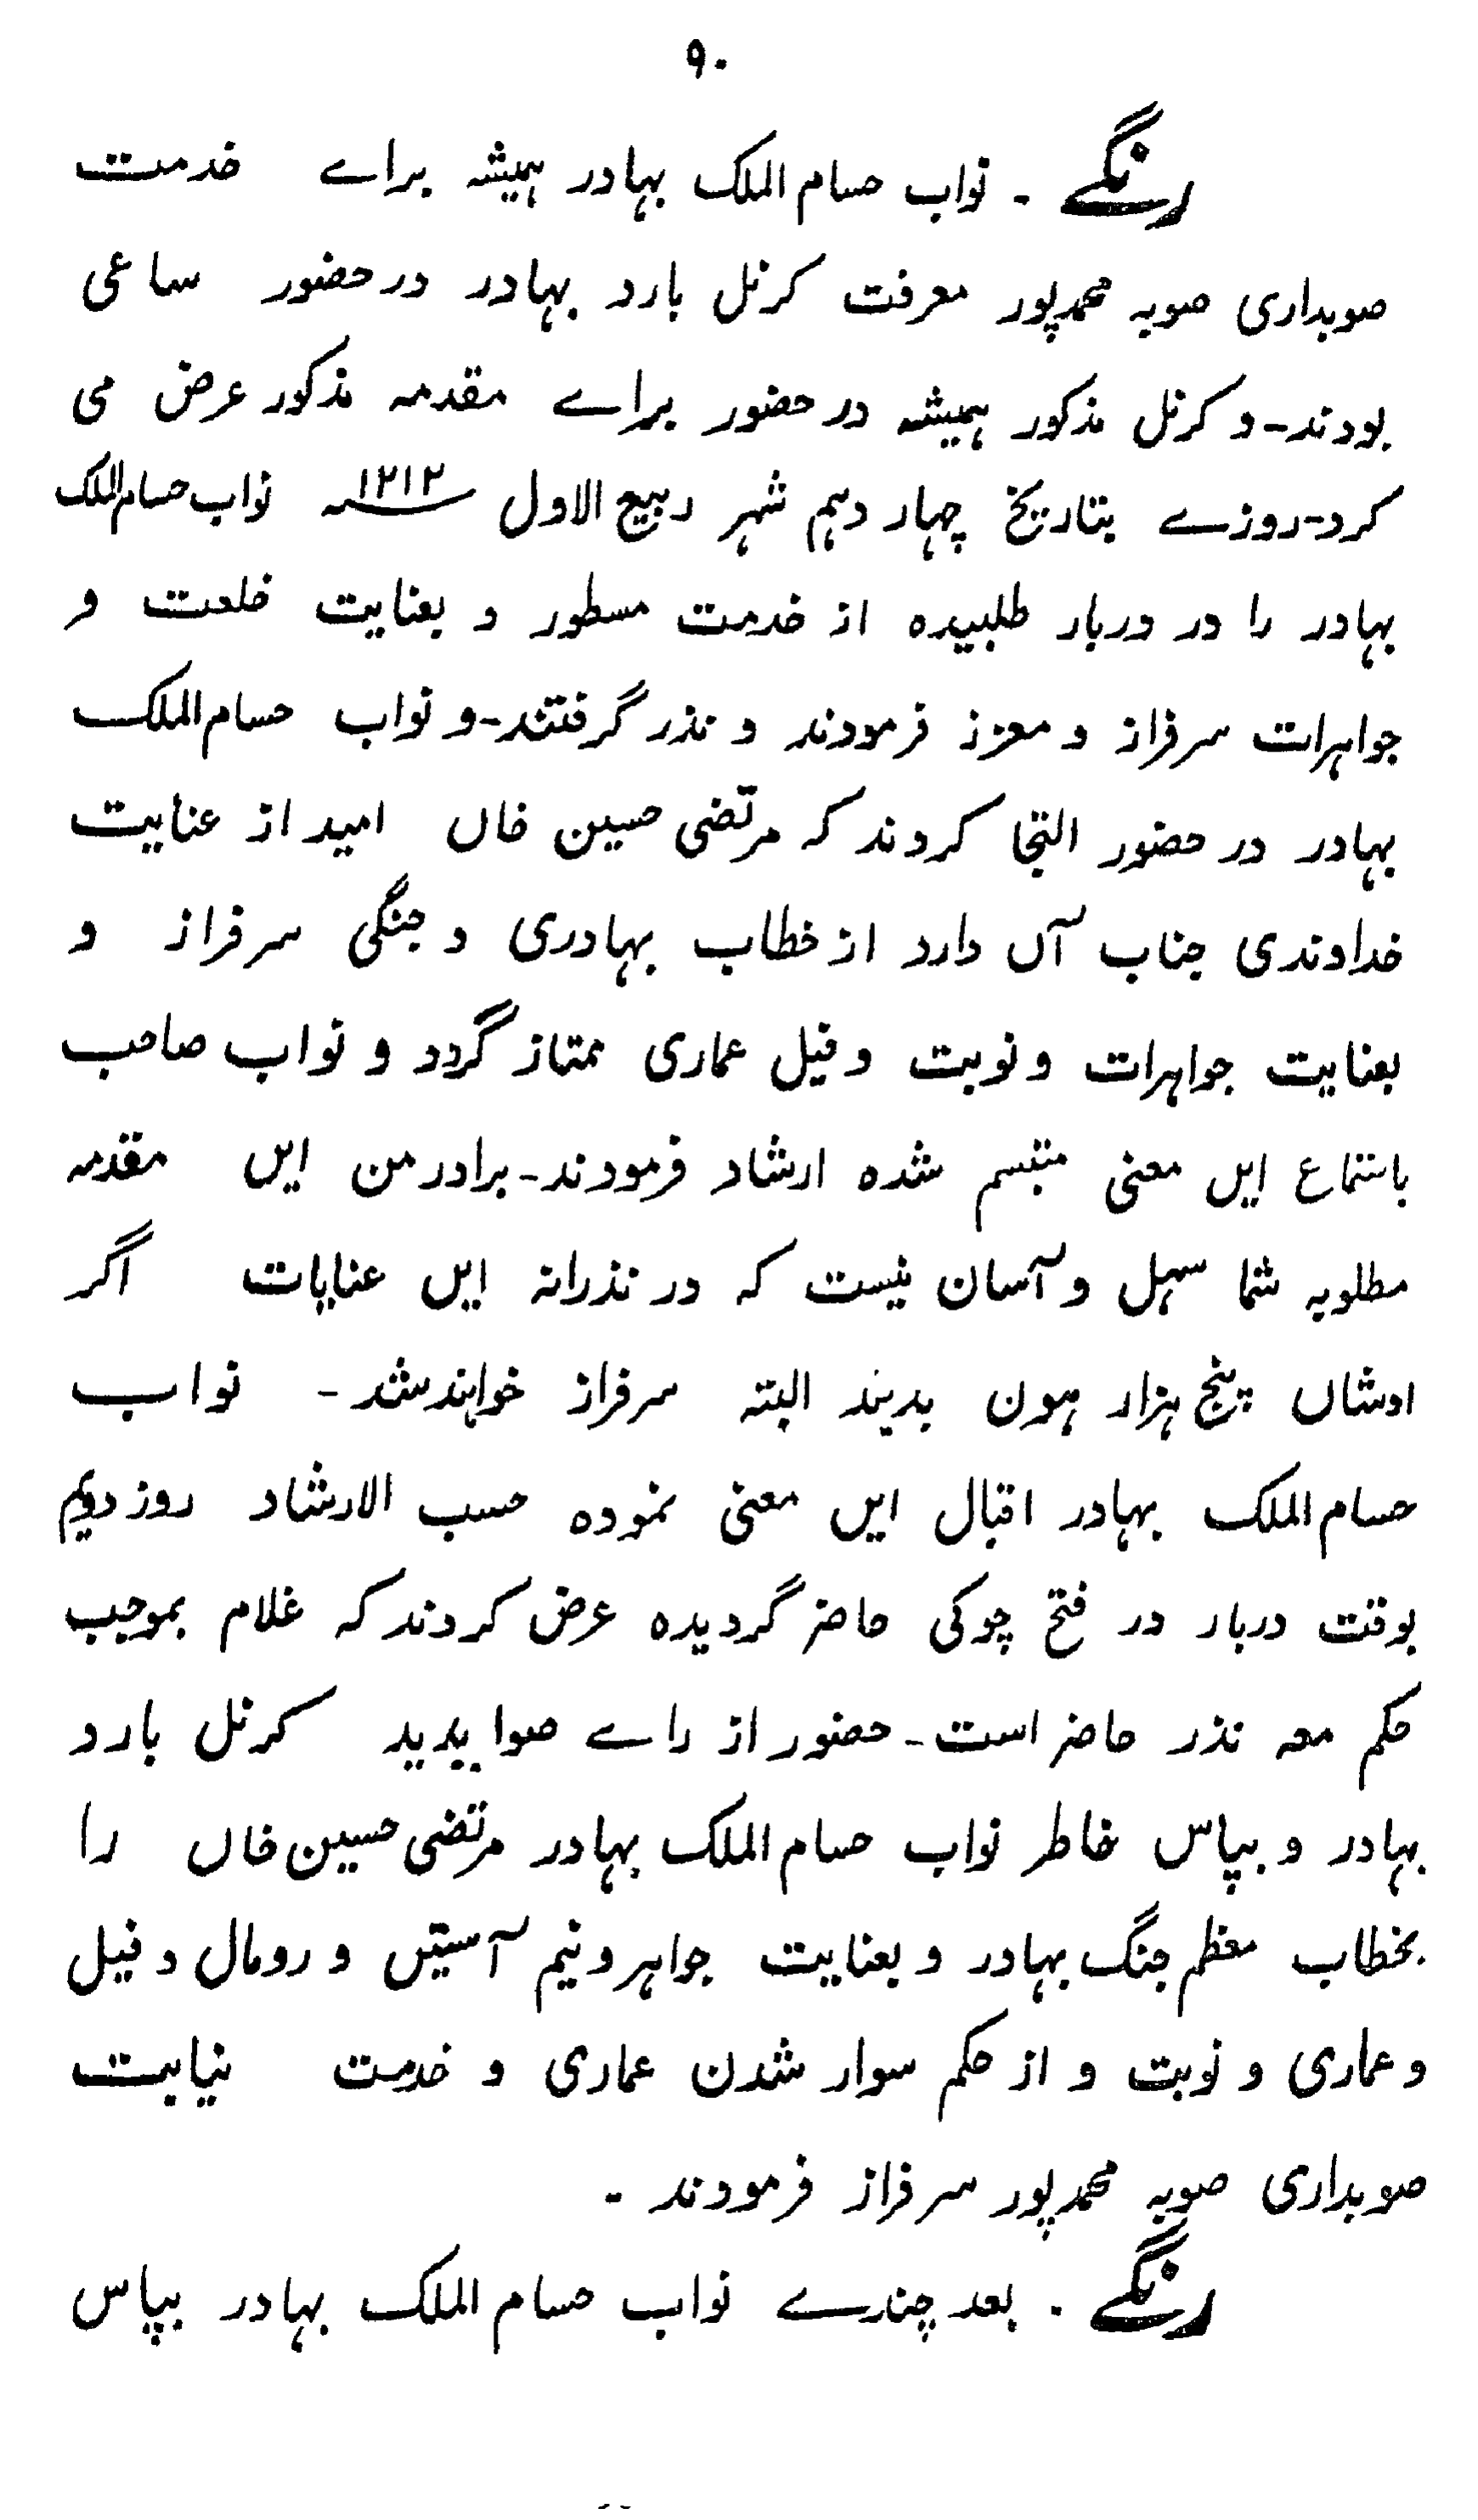 ۹۰
رنگے ۔ نواب حسام الملک بہادر ہمیشہ براے خدمت
صوبداری صوبہ محمدپور معرفت کرنل بارد بہادر در حضور ساعی
بودند۔ و کرنل مذکور ہمیشہ در حضور براے مقدمہ مذکور عرض می
کرد۔ روزے بتاریخ چہار دہم شہر ربیع الاول ۱۲۱۲ نواب حسام الملک
بہادر را در دربار طلبیدہ از خدمت مسطور و بعنایت خلعت و
جواہرات سرفراز و معزز فرمودند و نذر گرفتند۔ و نواب حسام الملک
بہادر در حضور التجا کردند کہ مرتضی حسین خاں امید از عنایت
خداوندی جناب آں دارد از خطاب بہادری و جنگی سرفراز و
بعنایت جواہرات و نوبت و فیل عماری ممتاز گردد و نواب صاحب
باستماع ایں معنی متبسم شدہ ارشاد فرمودند۔ برادر من ایں مقدمہ
مطلوبہ شما سہل و آسان نیست کہ در نذرانہ ایں عنایات اگر
اوشاں پنج ہزار ہون بدہند البتہ سرفراز خواہند شد۔ نواب
حسام الملک بہادر اقبال ایں معنی نمودہ حسب الارشاد روز دویم
بوقت دربار در فتح چوکی حاضر گردیدہ عرض کردند کہ غلام بموجب
حکم معہ نذر حاضر است۔ حضور از راے صوابدید کرنل بارد
بہادر و بپاس خاطر نواب حسام الملک بہادر مرتضی حسین خاں را
بخطاب معظم جنگ بہادر و بعنایت جواہر و نیم آستیں و رومال و فیل
و عماری و نوبت و از حکم سوار شدن عماری و خدمت نیابت
صوبداری صوبہ محمدپور سرفراز فرمودند ۔
رنگے ۔ بعد چندے نواب حسام الملک بہادر بپاس